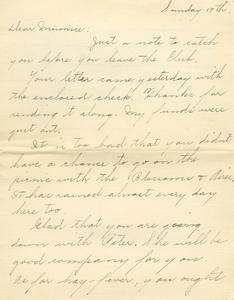 Sunday 19th
Dear Dommie:
Just a note to catch
you before you leave the Club.
Your letter came yesterday with
the enclosed check. Thanks for
sending it along. My funds were
just out.
It is too bad that you didn't
have a chance to go on the
picnic with the &
It has rained almost every day
here too.
Glad that you are going
down with Peter. She will be
good company for you.
As for hay-fever, you ought